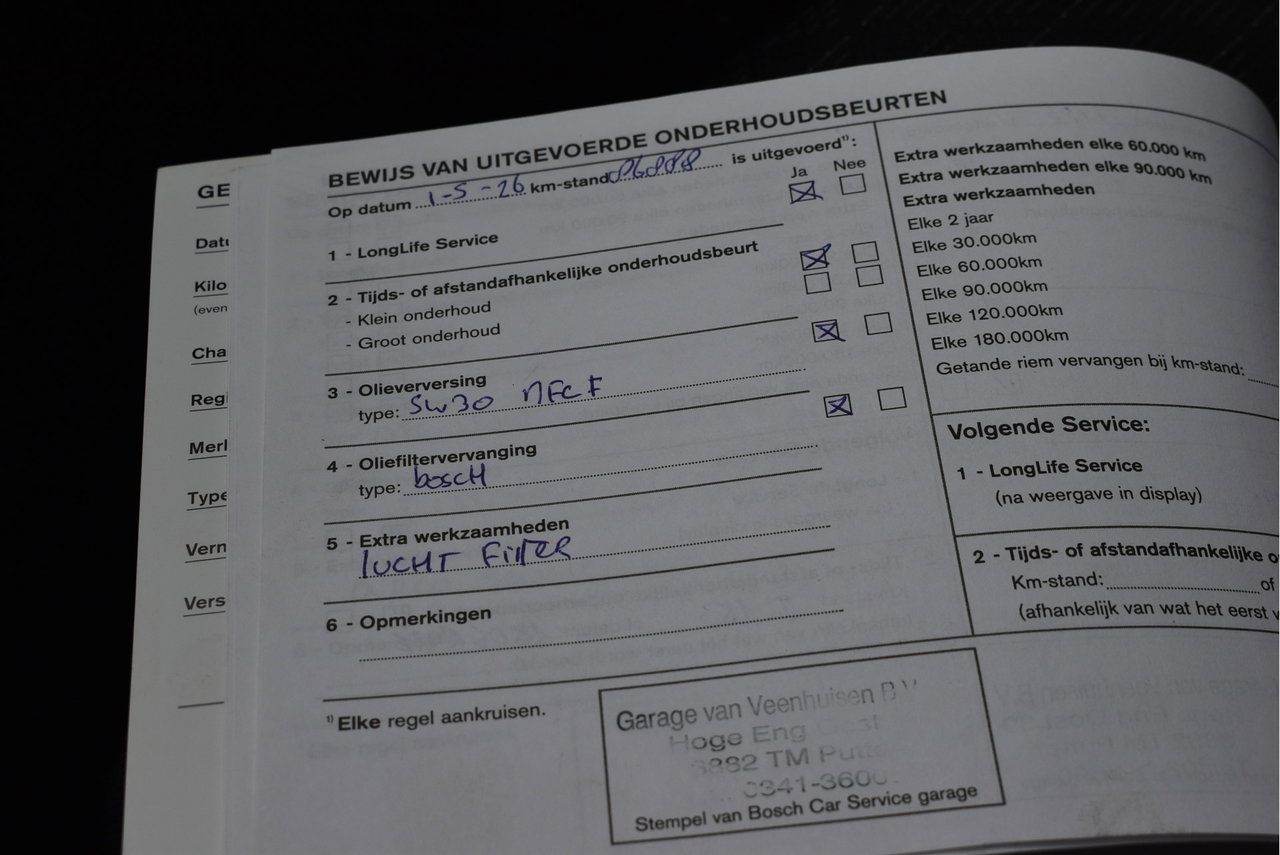 GE
Dat
Kilo
(even
Cha
Regi
Merl
Type
Vern
Vers
BEWIJS VAN UITGEVOERDE ONDERHOUDSBEURTEN
Op datum 1-5-26 km-stand is uitgevoerd¹⁾:
Ja Nee
1 - LongLife Service
2 - Tijds- of afstandafhankelijke onderhoudsbeurt
- Klein onderhoud
- Groot onderhoud
3 - Olieverversing
type: 5W30
4 - Oliefiltervervanging
type: boscH
5 - Extra werkzaamheden
lUCHT FilTER
6 - Opmerkingen
¹⁾ Elke regel aankruisen.
Garage van Veenhuisen B.V
Hoge Eng
TM
Stempel van Bosch Car Service garage
Extra werkzaamheden elke 60.000 km
Extra werkzaamheden elke 90.000 km
Extra werkzaamheden
Elke 2 jaar
Elke 30.000km
Elke 60.000km
Elke 90.000km
Elke 120.000km
Elke 180.000km
Getande riem vervangen bij km-stand:
Volgende Service:
1 - LongLife Service
(na weergave in display)
2 - Tijds- of afstandafhankelijke o
Km-stand: of
(afhankelijk van wat het eerst v